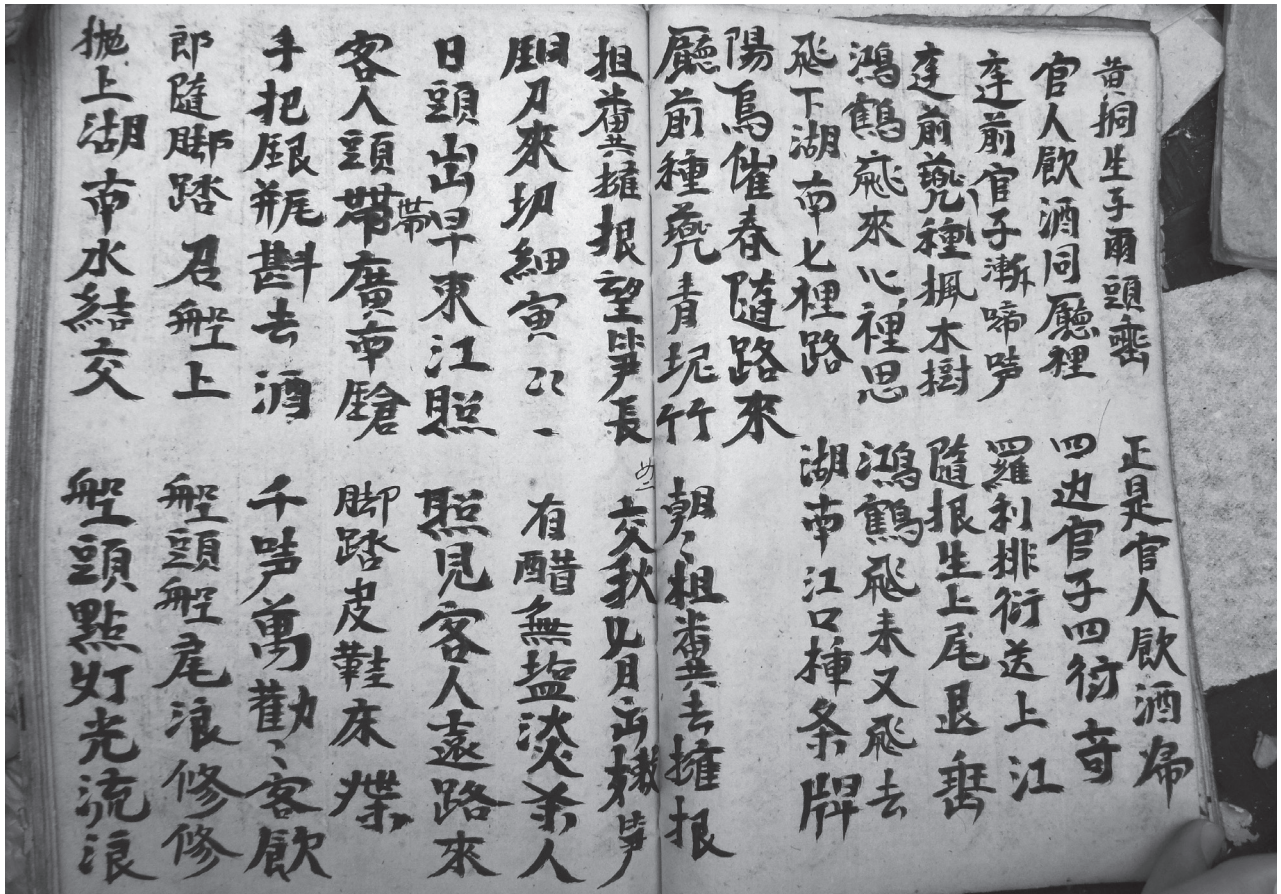 黄挏生子爾頭
正是官人飲酒歸
官人飲酒同廳裡
四边官子四衍奇
前官子漸啼
羅利排衍送上江
前種楓木樹
隨根生上尾退
鴻鶴飛來心裡思
鴻鶴飛来又飛去
飛下湖南七裡路
湖南江口揷条牌
陽鳥催春隨路來
廳前種青坭竹
朝〻担糞去擁根
担糞擁根望笋長
交秋七月出笋
刀來切細寅
有醋無盐淡杀人
日頭出早東江照
照見客人遠路來
客人頭帶帶廣南
脚踏皮鞋床
手把銀瓶斟去酒
千声萬勸〻客飲
郎隨脚踏召船上
船頭船尾浪修修
拋上湖南水結交
船頭點灯光流浪